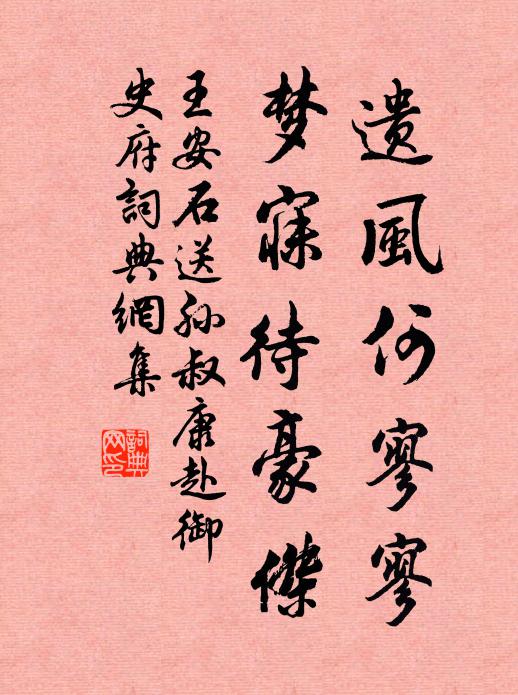 遗風何寥寥
梦寐待豪傑
王安石送孙叔康赴御
史府詞典網集
詞典
网印